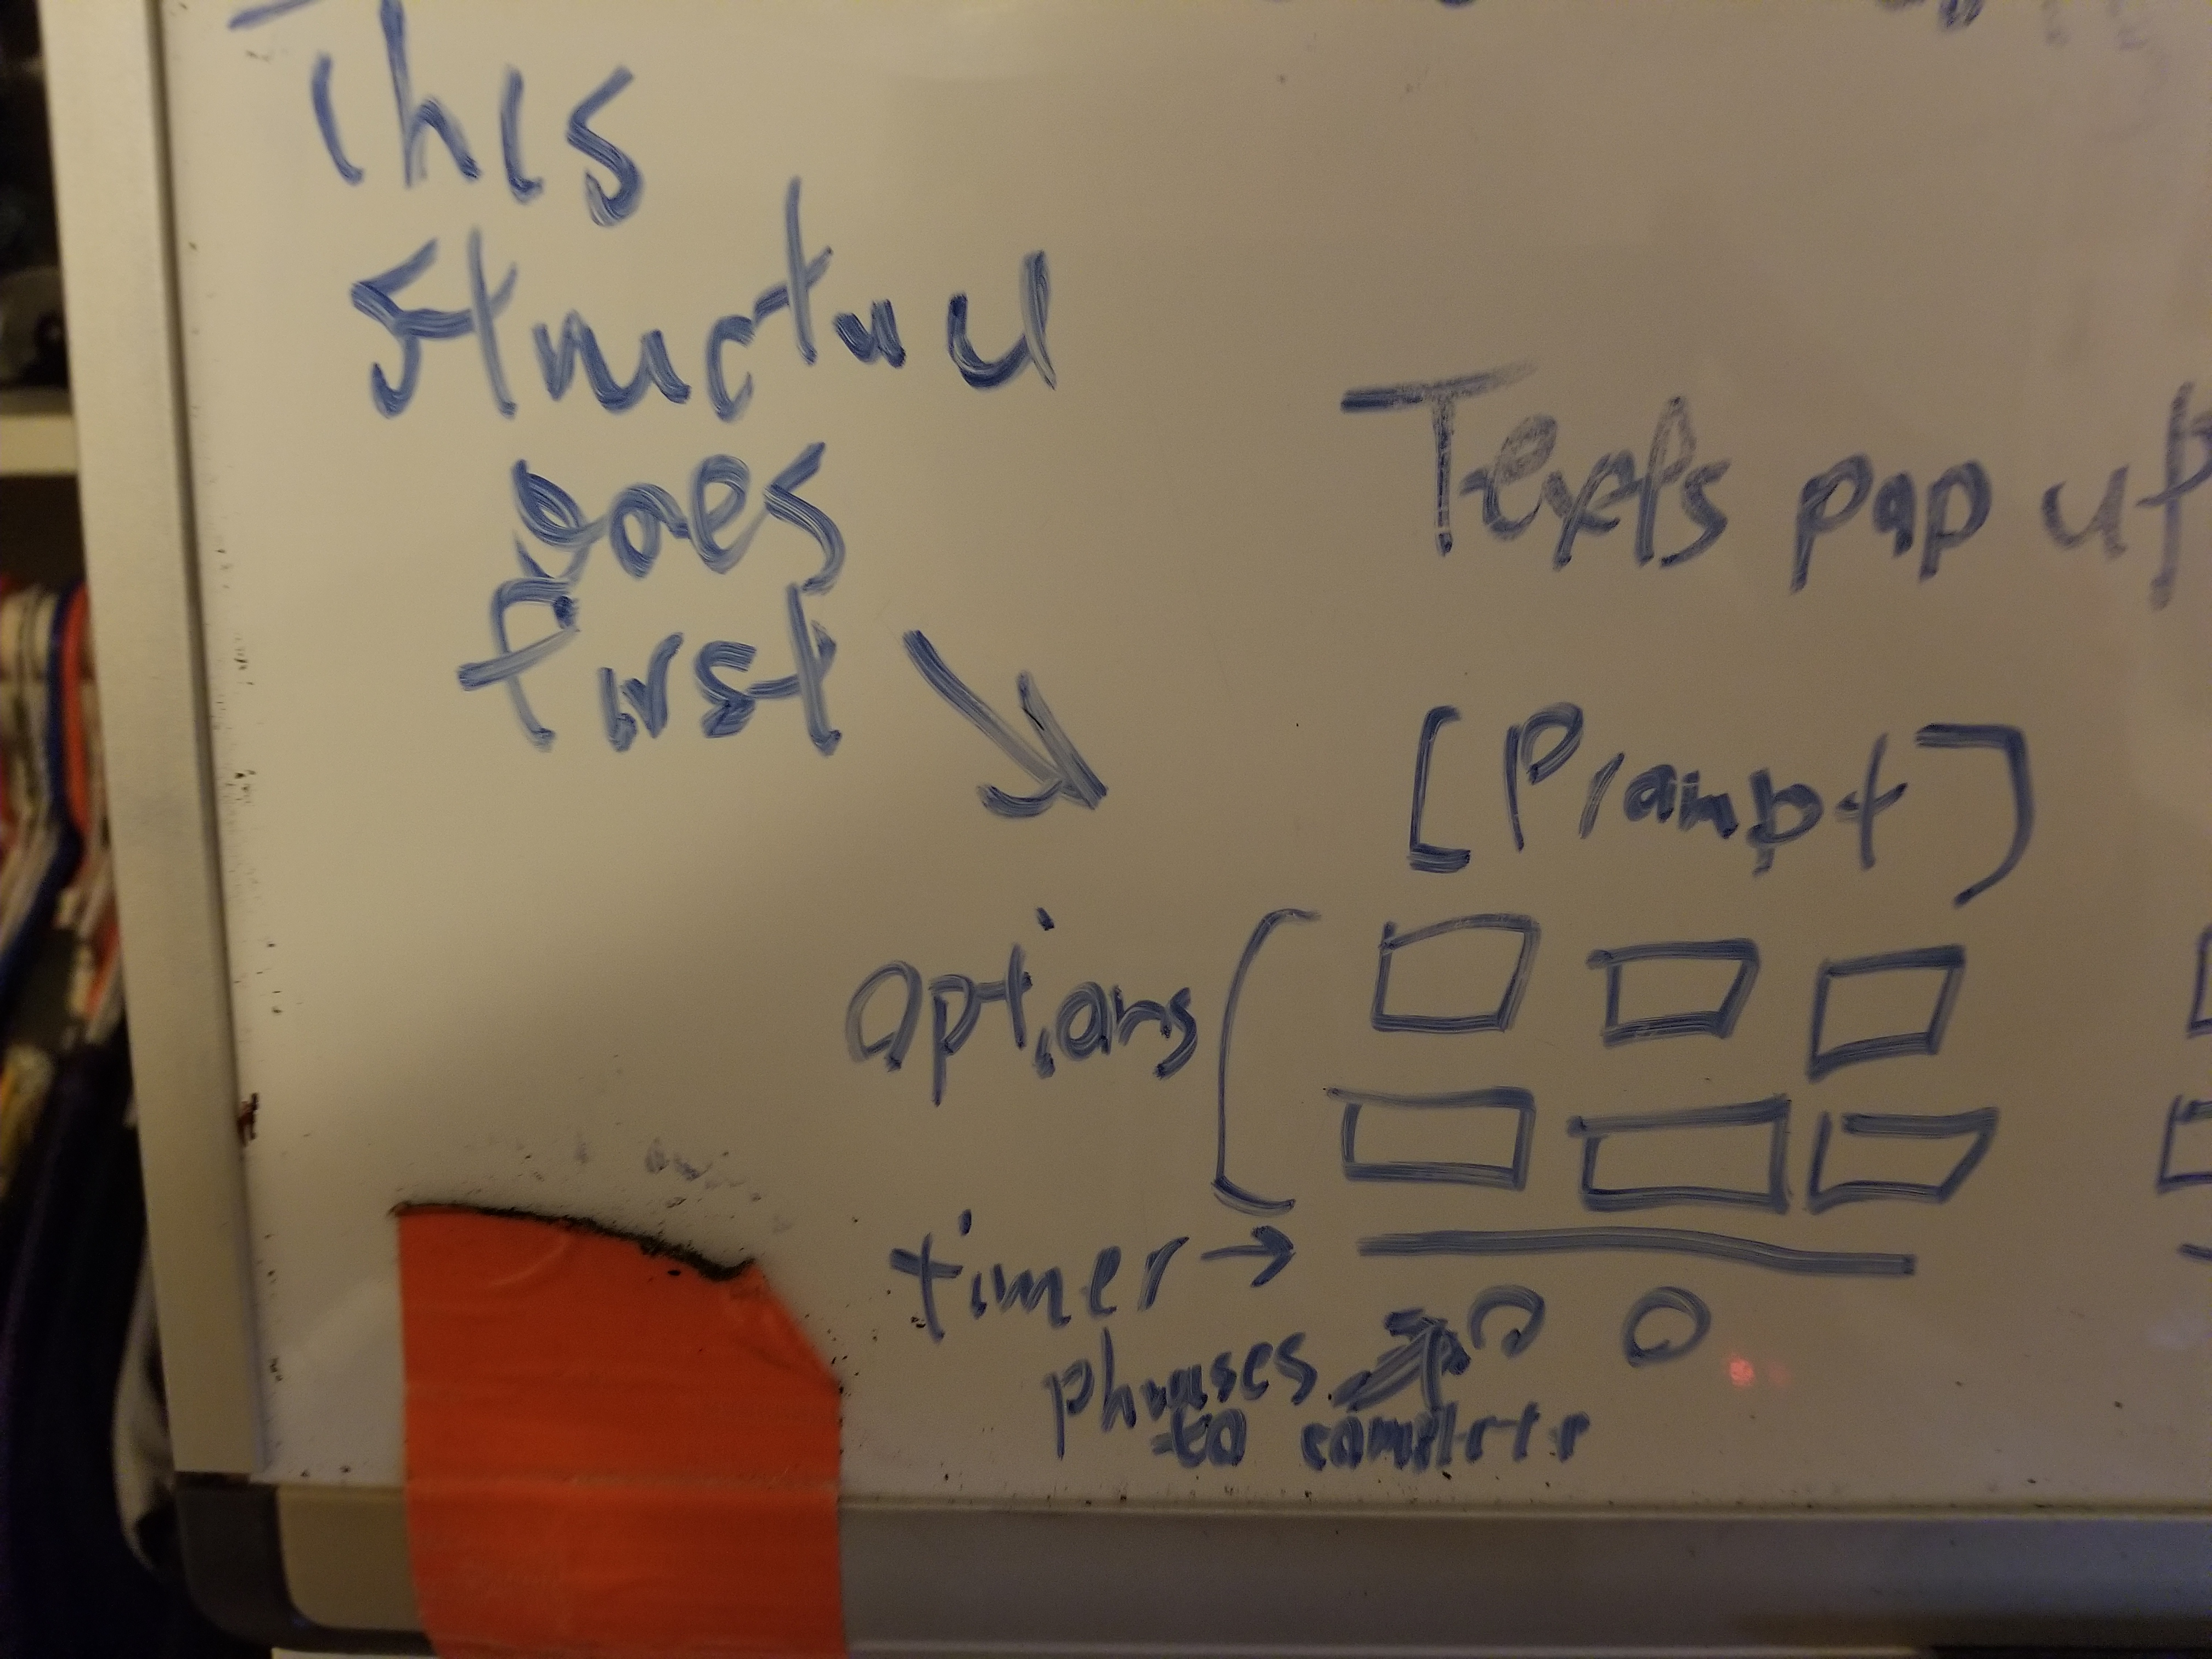 This
structure
goes
first
Texts pop up
[Prompt]
options
timer →
phrases
to complete